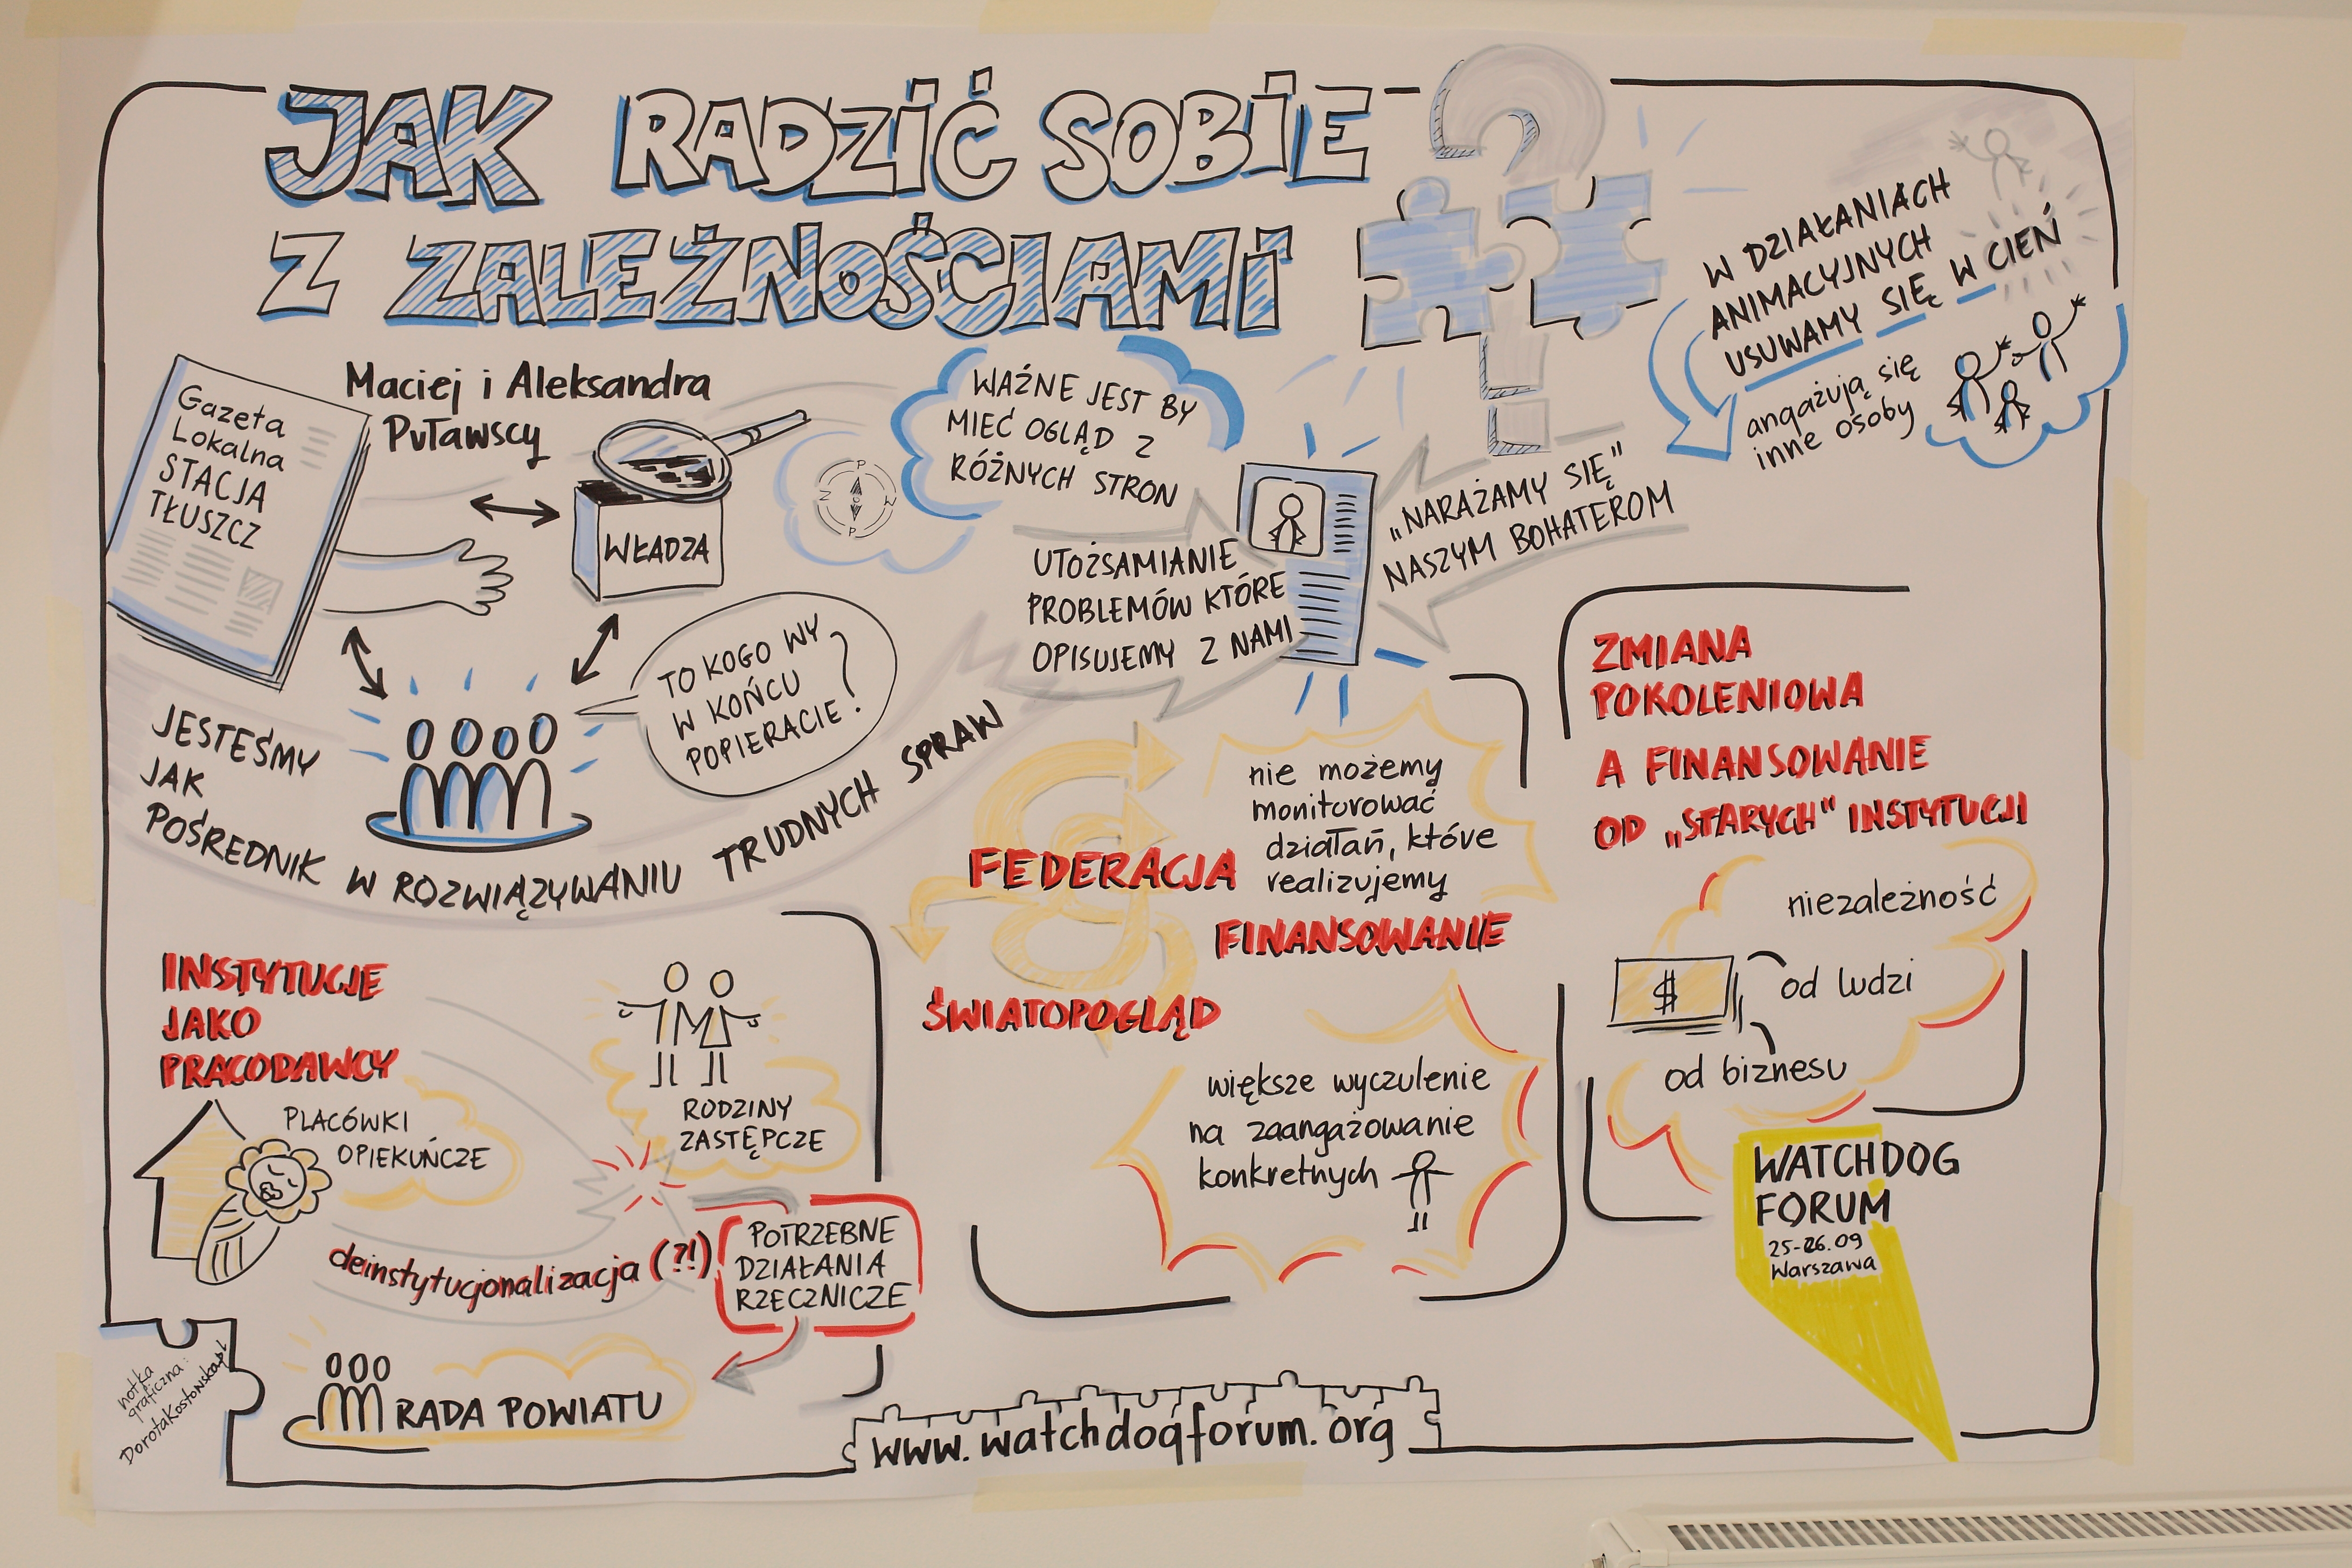 JAK RADZIĆ SOBIE
Z ZALEŻNOŚCIAMI ?
Gazeta
Lokalna
STACJA
TŁUSZCZ
Maciej i Aleksandra
Puławscy
WŁADZA
N
P
W
P
WAŹNE JEST BY
MIEĆ OGLĄD Z
RÓŻNYCH STRON
W DZIAŁANIACH
ANIMACYJNYCH
USUWAMY SIĘ W CIEŃ
angażują się
inne osoby
UTOŻSAMIANIE
PROBLEMÓW KTÓRE
OPISUJEMY Z NAMI
„NARAŻAMY SIĘ"
NASZYM BOHATEROM
TO KOGO WY
W KOŃCU
POPIERACIE?
JESTEŚMY
JAK
POŚREDNIK W ROZWIĄZYWANIU TRUDNYCH SPRAW
INSTYTUCJE
JAKO
PRACODAWCY
PLACÓWKI
OPIEKUŃCZE
RODZINY
ZASTĘPCZE
deinstytucjonalizacja (?!)
POTRZEBNE
DZIAŁANIA
RZECZNICZE
RADA POWIATU
nie możemy
monitorować
działań, które
realizujemy
FEDERACJA
FINANSOWANIE
ŚWIATOPOGLĄD
większe wyczulenie
na zaangażowanie
konkretnych
ZMIANA
POKOLENIOWA
A FINANSOWANIE
OD „STARYCH" INSTYTUCJI
niezależność
$
od ludzi
od biznesu
WATCHDOG
FORUM
25-26.09
Warszawa
notka
graficzna:
DorotaKostowska.pl
www.watchdogforum.org